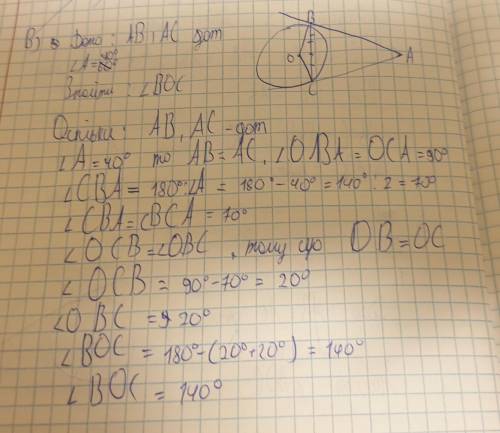 В3 Дано: AB і AC дот
∠A=40°
Знайти: ∠BOC
B
O
A
C
Оскільки: AB, AC - дот
∠A=40° то AB=AC, ∠OBA=OCA=90°
∠CBA= 180°:∠A = 180°-40°=140°:2=70°
∠CBA=∠BCA=70°
∠OCB=∠OBC, тому що OB=OC
∠OCB = 90°-70°= 20°
∠OBC = 20°
∠BOC = 180°-(20°+20°) = 140°
∠BOC = 140°